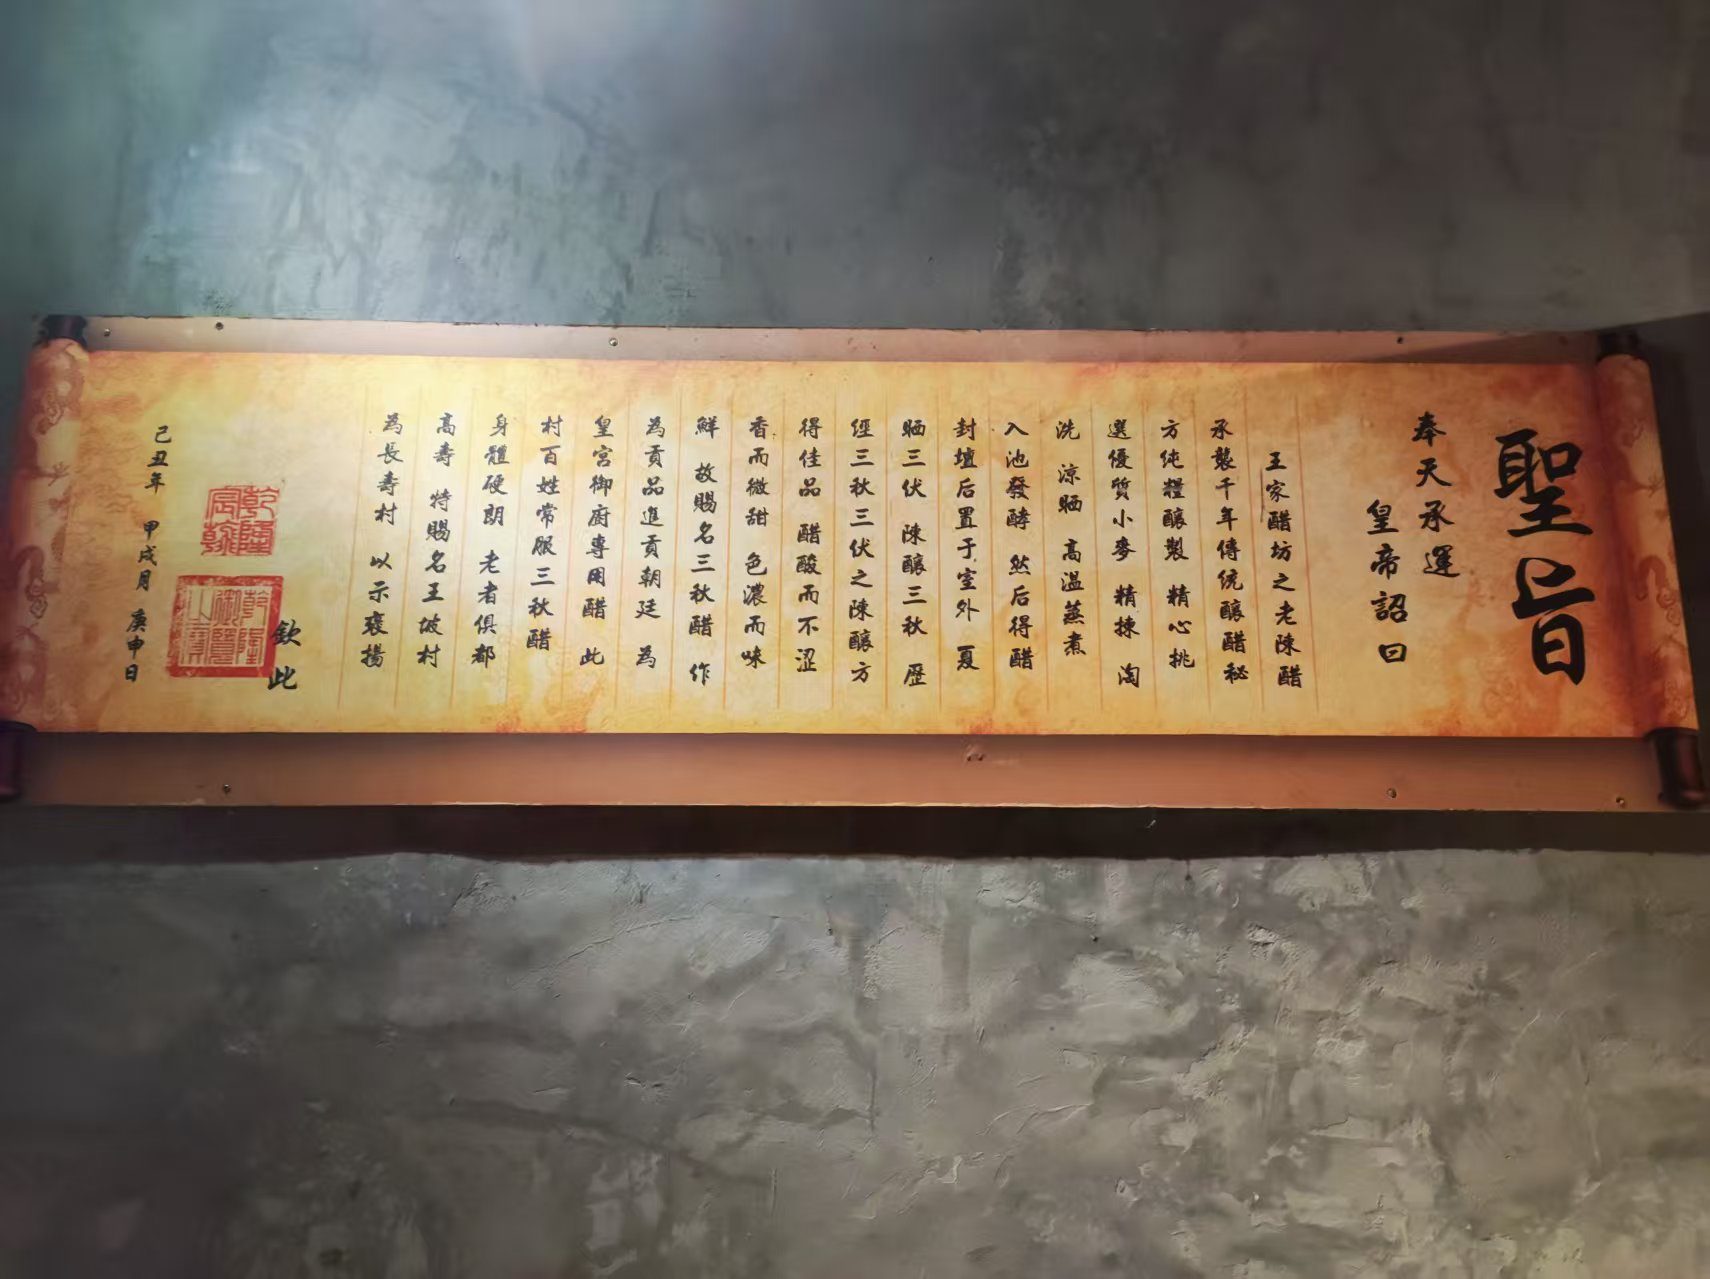 聖旨
奉天承運
皇帝詔曰
王家醋坊之老陳醋
承襲千年傳統釀醋秘
方純糧釀製 精心挑
選優質小麥 精揀 淘
洗 涼晒 高溫蒸煮
入池發酵 然后得醋
封壇后置于室外 夏
晒三伏 陳釀三秋 歷
經三秋三伏之陳釀方
得佳品 醋酸而不澀
香而微甜 色濃而味
鮮 故賜名三秋醋 作
為貢品進貢朝廷 為
皇宮御廚專用醋 此
村百姓常服三秋醋
身體硬朗 老者俱都
高壽 特賜名王坡村
為長壽村 以示褒揚
欽此
乾隆宸翰
乾隆御覽之寶
己丑年 甲戌月 庚申日